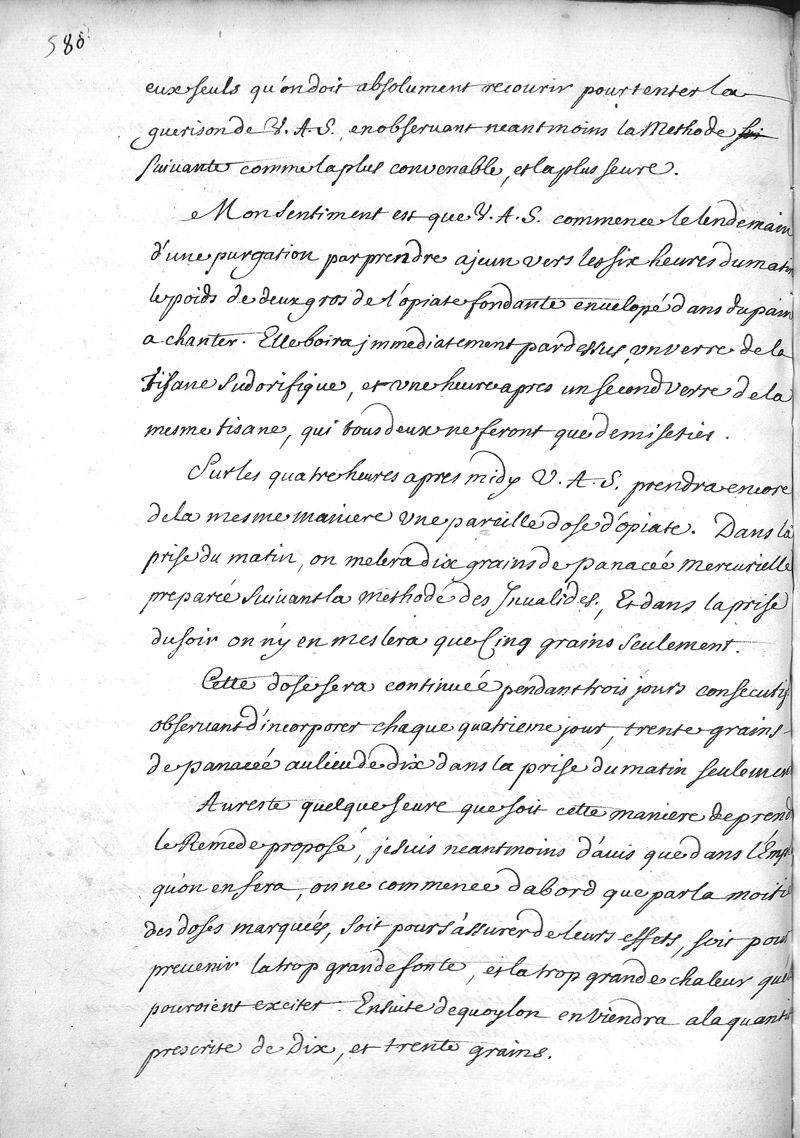 588
eux seuls qu'on doit absolument recourir pour tenter la
guerison de V. A. S., en observant neantmoins la Methode sui
suivante comme la plus convenable, et la plus seure.
Mon sentiment est que V. A. S. commence le lendemain
d'une purgation par prendre a jeun vers les six heures du matin
le poids de deux gros de l'opiate fondante envelopé dans du pain
a chanter. Elle boira jmmediatement par dessus, un verre de la
Tisane Sudorifique, et une heure apres un second verre de la
mesme tisane, qui tous deux ne feront que demi setiés.
Sur les quatre heures apres midy V. A. S. prendra encore
de la mesme maniere une pareille dose d'opiate. Dans la
prise du matin, on melera dix grains de panaceé mercurielle
prepareé suivant la methode des Jnvalides, Et dans la prise
du soir on n'y en meslera que Cinq grains seulement.
Cette dose sera continueé pendant trois jours consecutifs
observant d'incorporer chaque quatrieme jour, trente grains
de panaceé au lieu de dix dans la prise du matin seulement
Au reste quelque seure que soit cette maniere de prend
le Remede proposé, je suis neantmoins d'avis que dans l'Empl
qu'on en fera, on ne commence d'abord que par la moitié
des doses marqueés, soit pour s'assurer de leurs effets, soit pour
prevenir la trop grande fonte, et la trop grande chaleur que
pouroient exciter. Ensuite de quoy l'on en viendra a la quantit
prescrite de Dix, et trente grains.